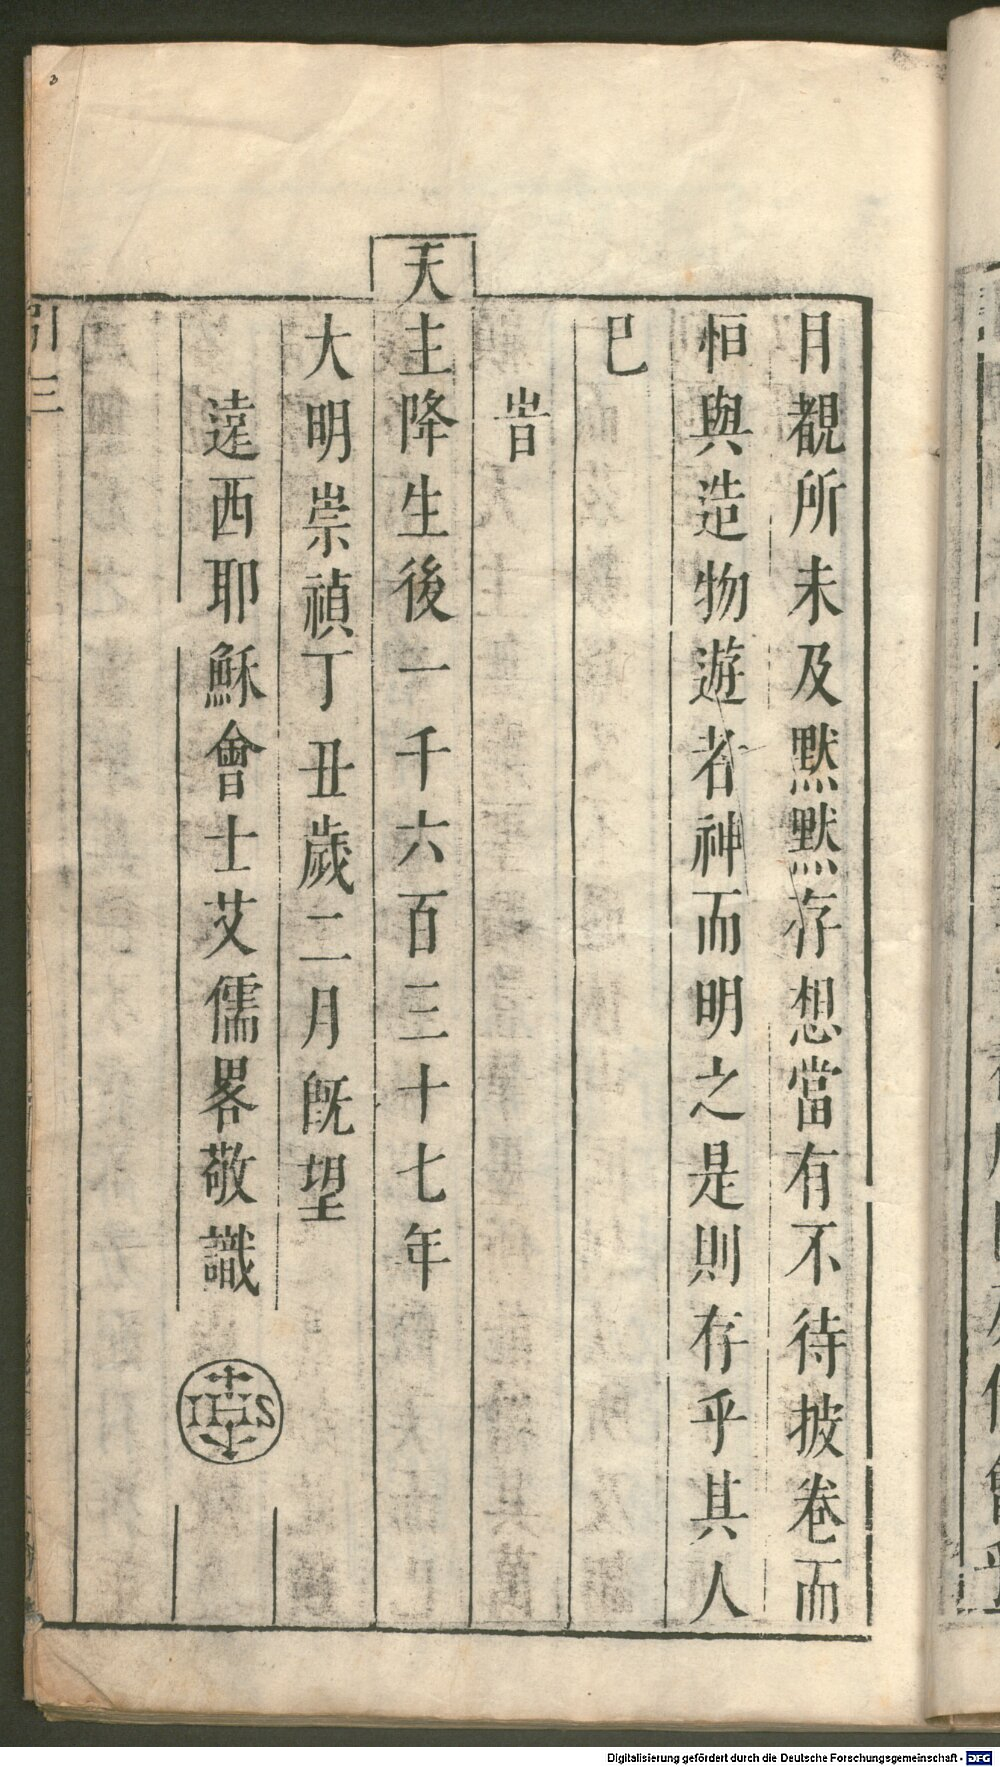 目覩所未及默默存想當有不待披卷而
恒與造物遊者神而明之是則存乎其人
巳
旹
天主降生後一千六百三十七年
大明崇禎丁丑歲二月旣望
遠西耶穌會士艾儒畧敬識
IHS
引 三
3
Digitalisierung gefördert durch die Deutsche Forschungsgemeinschaft - DFG